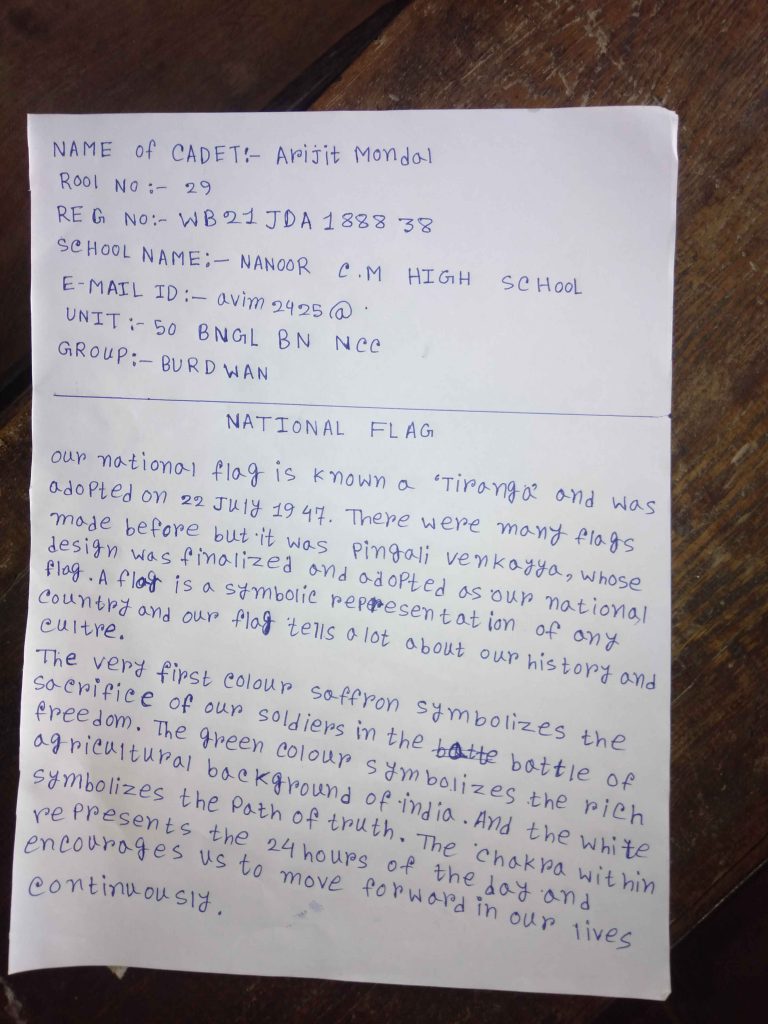 NAME of CADET:- Arijit Mondal
Rool NO :- 29
REG NO:- WB21 JDA 1888 38
SCHOOL NAME:- NANOOR C.M HIGH SCHOOL
E-MAIL ID:- avim2425@
UNIT:- 50 BNGL BN NCC
GROUP:- BURDWAN
NATIONAL FLAG
our national flag is known a 'Tiranga' and was
adopted on 22 July 1947. There were many flags
made before but it was Pingali venkayya, whose
design was finalized and adopted as our national
flag. A flag is a symbolic representation of any
country and our flag tells a lot about our history and
cultre.
The very first colour saffron symbolizes the
sacrifice of our soldiers in the batte battle of
freedom. The green colour symbolizes the rich
agricultural background of india. And the white
symbolizes the path of truth. The chakra within
represents the 24 hours of the day and
encourages us to move forward in our lives
continuously.